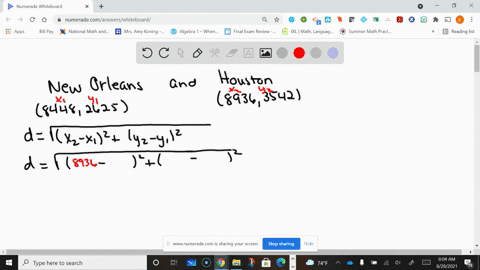 Numerade Whiteboard
numerade.com/answers/whiteboard/
Apps
Bill Pay
National Math and...
Mrs. Amy Koning -...
Algebra 1 – Wheren...
Final Exam Review -...
IXL | Math, Languag...
Summer Math Pract...
Reading list
New Orleans and Houston
x₁ y₁ x₂ y₂
(8448, 2625) (8936, 3542)
d = √(x₂-x₁)² + (y₂-y₁)²
d = √(8936- )² + ( - )²
www.numerade.com is sharing your screen.
Stop sharing
Hide
Type here to search
74°F
8:06 AM
8/20/2021